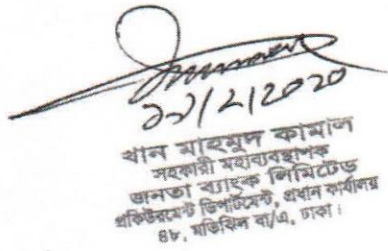 ২১/২/২০২০
খান মাহমুদ কামাল
সহকারী মহাব্যবস্থাপক
জনতা ব্যাংক লিমিটেড
প্রকিউরমেন্ট ডিপার্টমেন্ট, প্রধান কার্যালয়
৪৮, মতিঝিল বা/এ, ঢাকা।